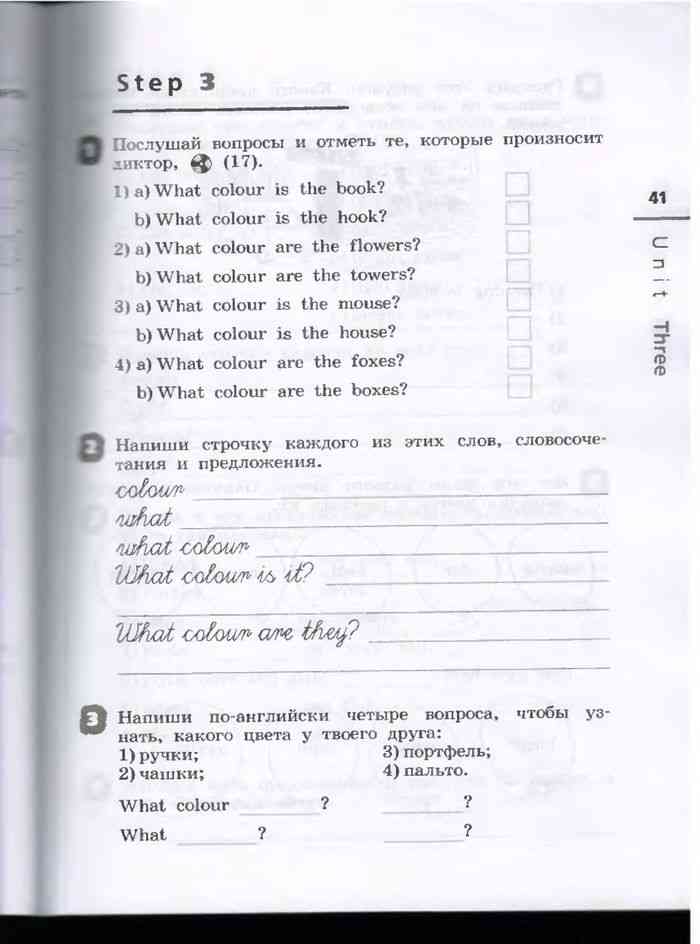 Step 3
1 Послушай вопросы и отметь те, которые произносит
диктор, (17).
1) a) What colour is the book?
b) What colour is the hook?
2) a) What colour are the flowers?
b) What colour are the towers?
3) a) What colour is the mouse?
b) What colour is the house?
4) a) What colour are the foxes?
b) What colour are the boxes?
41
Unit Three
2 Напиши строчку каждого из этих слов, словосоче-
тания и предложения.
colour
what
what colour
What colour is it?
What colour are they?
3 Напиши по-английски четыре вопроса, чтобы уз-
нать, какого цвета у твоего друга:
1) ручки; 3) портфель;
2) чашки; 4) пальто.
What colour ________? ________?
What ________? ________?